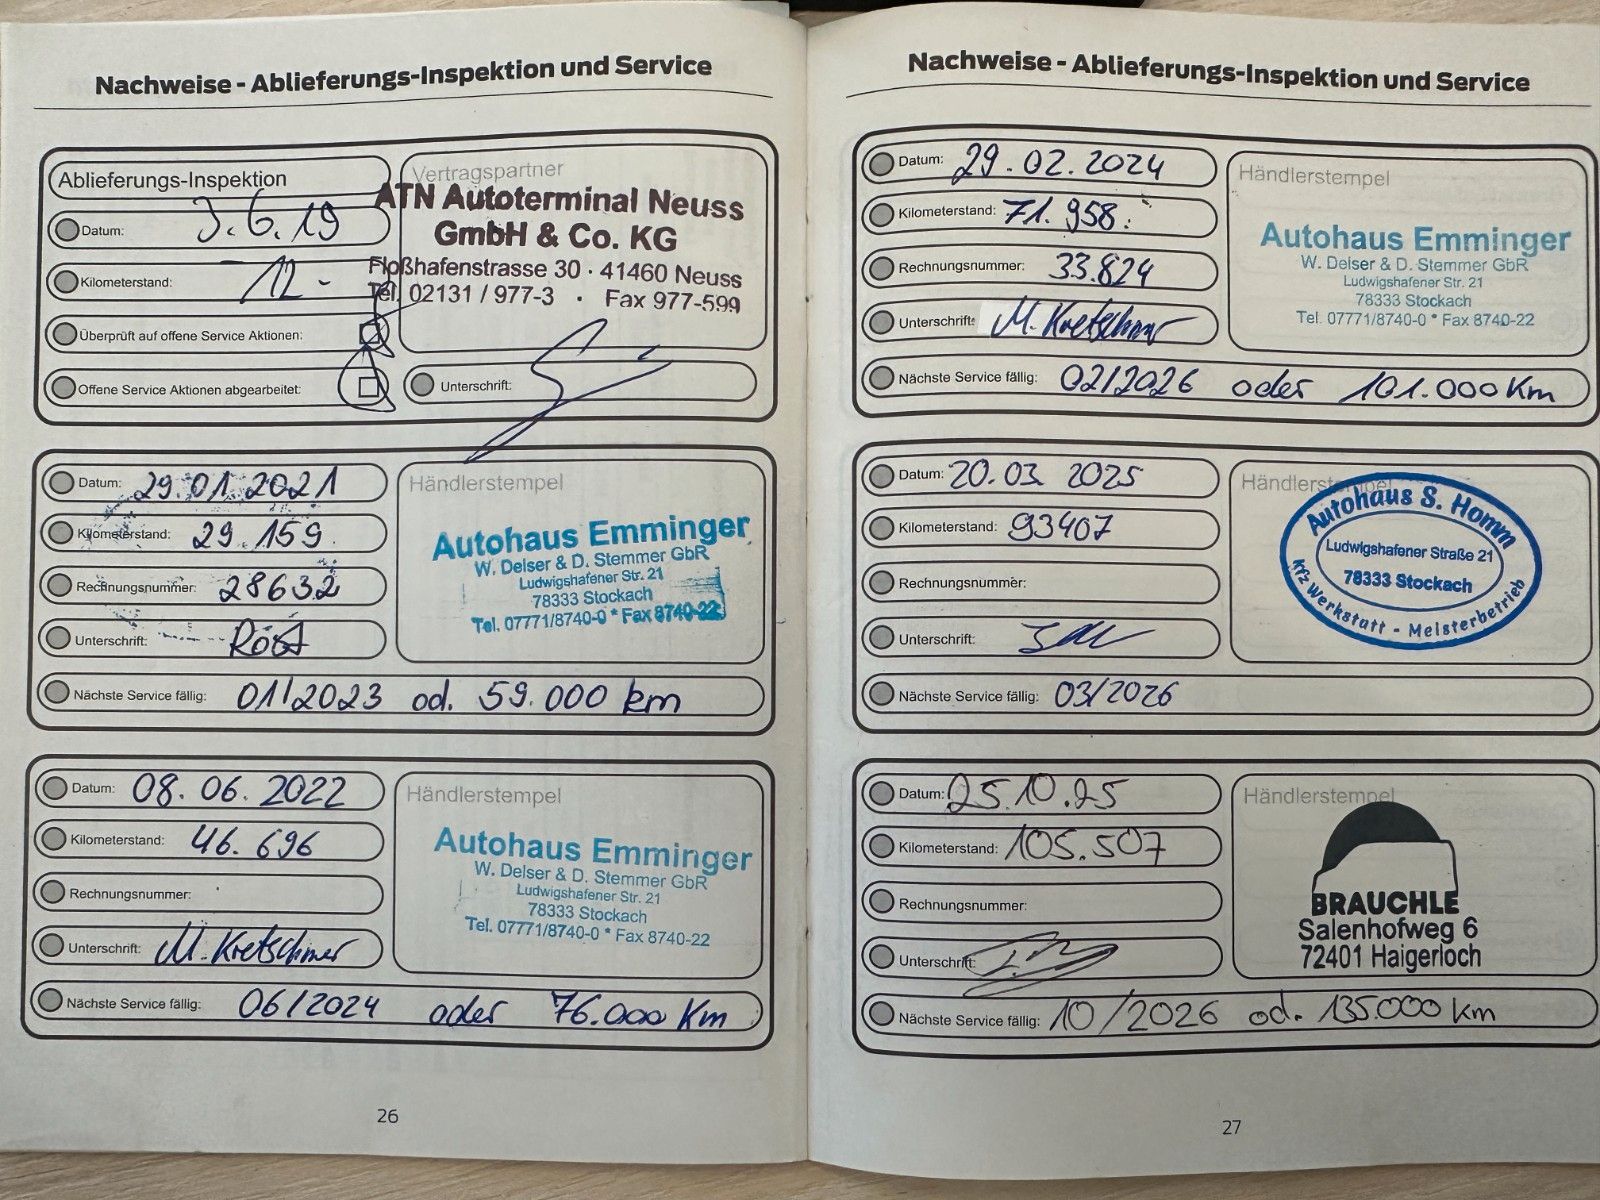 Nachweise - Ablieferungs-Inspektion und Service
Ablieferungs-Inspektion
Datum: 3.6.19
Kilometerstand: 12.-
Überprüft auf offene Service Aktionen:
Offene Service Aktionen abgearbeitet:
Vertragspartner
ATN Autoterminal Neuss
GmbH & Co. KG
Floßhafenstrasse 30 · 41460 Neuss
Tel. 02131 / 977-3 · Fax 977-599
Unterschrift:
Datum: 29.01.2021
Kilometerstand: 29.159
Rechnungsnummer: 28632
Unterschrift:
Nächste Service fällig: 01/2023 od. 59.000 km
Händlerstempel
Autohaus Emminger
W. Delser & D. Stemmer GbR
Ludwigshafener Str. 21
78333 Stockach
Tel. 07771/8740-0 * Fax 8740-22
Datum: 08.06.2022
Kilometerstand: 46.696
Rechnungsnummer:
Unterschrift: M. Kretschmer
Nächste Service fällig: 06/2024 oder 76.000 Km
Händlerstempel
Autohaus Emminger
W. Delser & D. Stemmer GbR
Ludwigshafener Str. 21
78333 Stockach
Tel. 07771/8740-0 * Fax 8740-22
26
Nachweise - Ablieferungs-Inspektion und Service
Datum: 29.02.2024
Kilometerstand: 71.958.
Rechnungsnummer: 33.824
Unterschrift: M. Kretschmer
Nächste Service fällig: 02/2026 oder 101.000 Km
Händlerstempel
Autohaus Emminger
W. Delser & D. Stemmer GbR
Ludwigshafener Str. 21
78333 Stockach
Tel. 07771/8740-0 * Fax 8740-22
Datum: 20.03 2025
Kilometerstand: 93407
Rechnungsnummer:
Unterschrift:
Nächste Service fällig: 03/2026
Händlerstempel
Autohaus S. Homm
Ludwigshafener Straße 21
78333 Stockach
Kfz Werkstatt - Meisterbetrieb
Datum: 25.10.25
Kilometerstand: 105.507
Rechnungsnummer:
Unterschrift:
Nächste Service fällig: 10/2026 od. 135.000 km
Händlerstempel
BRAUCHLE
Salenhofweg 6
72401 Haigerloch
27